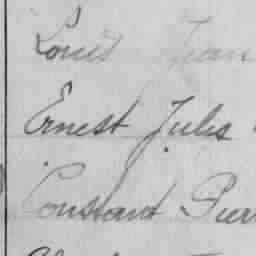 Louis Jean
Ernest Jules
Constant Pierr